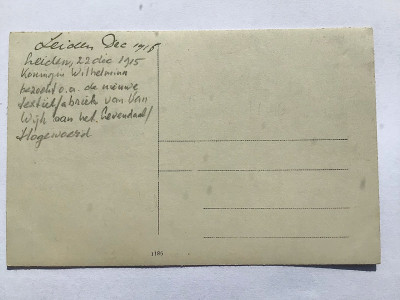 Leiden Dec 1915
Leiden, 22 dec 1915
Koningin Wilhelmina
bezocht o.a. de nieuwe
textielfabriek van Van
Wijk aan het Levendaal/
Hogewoerd
1186